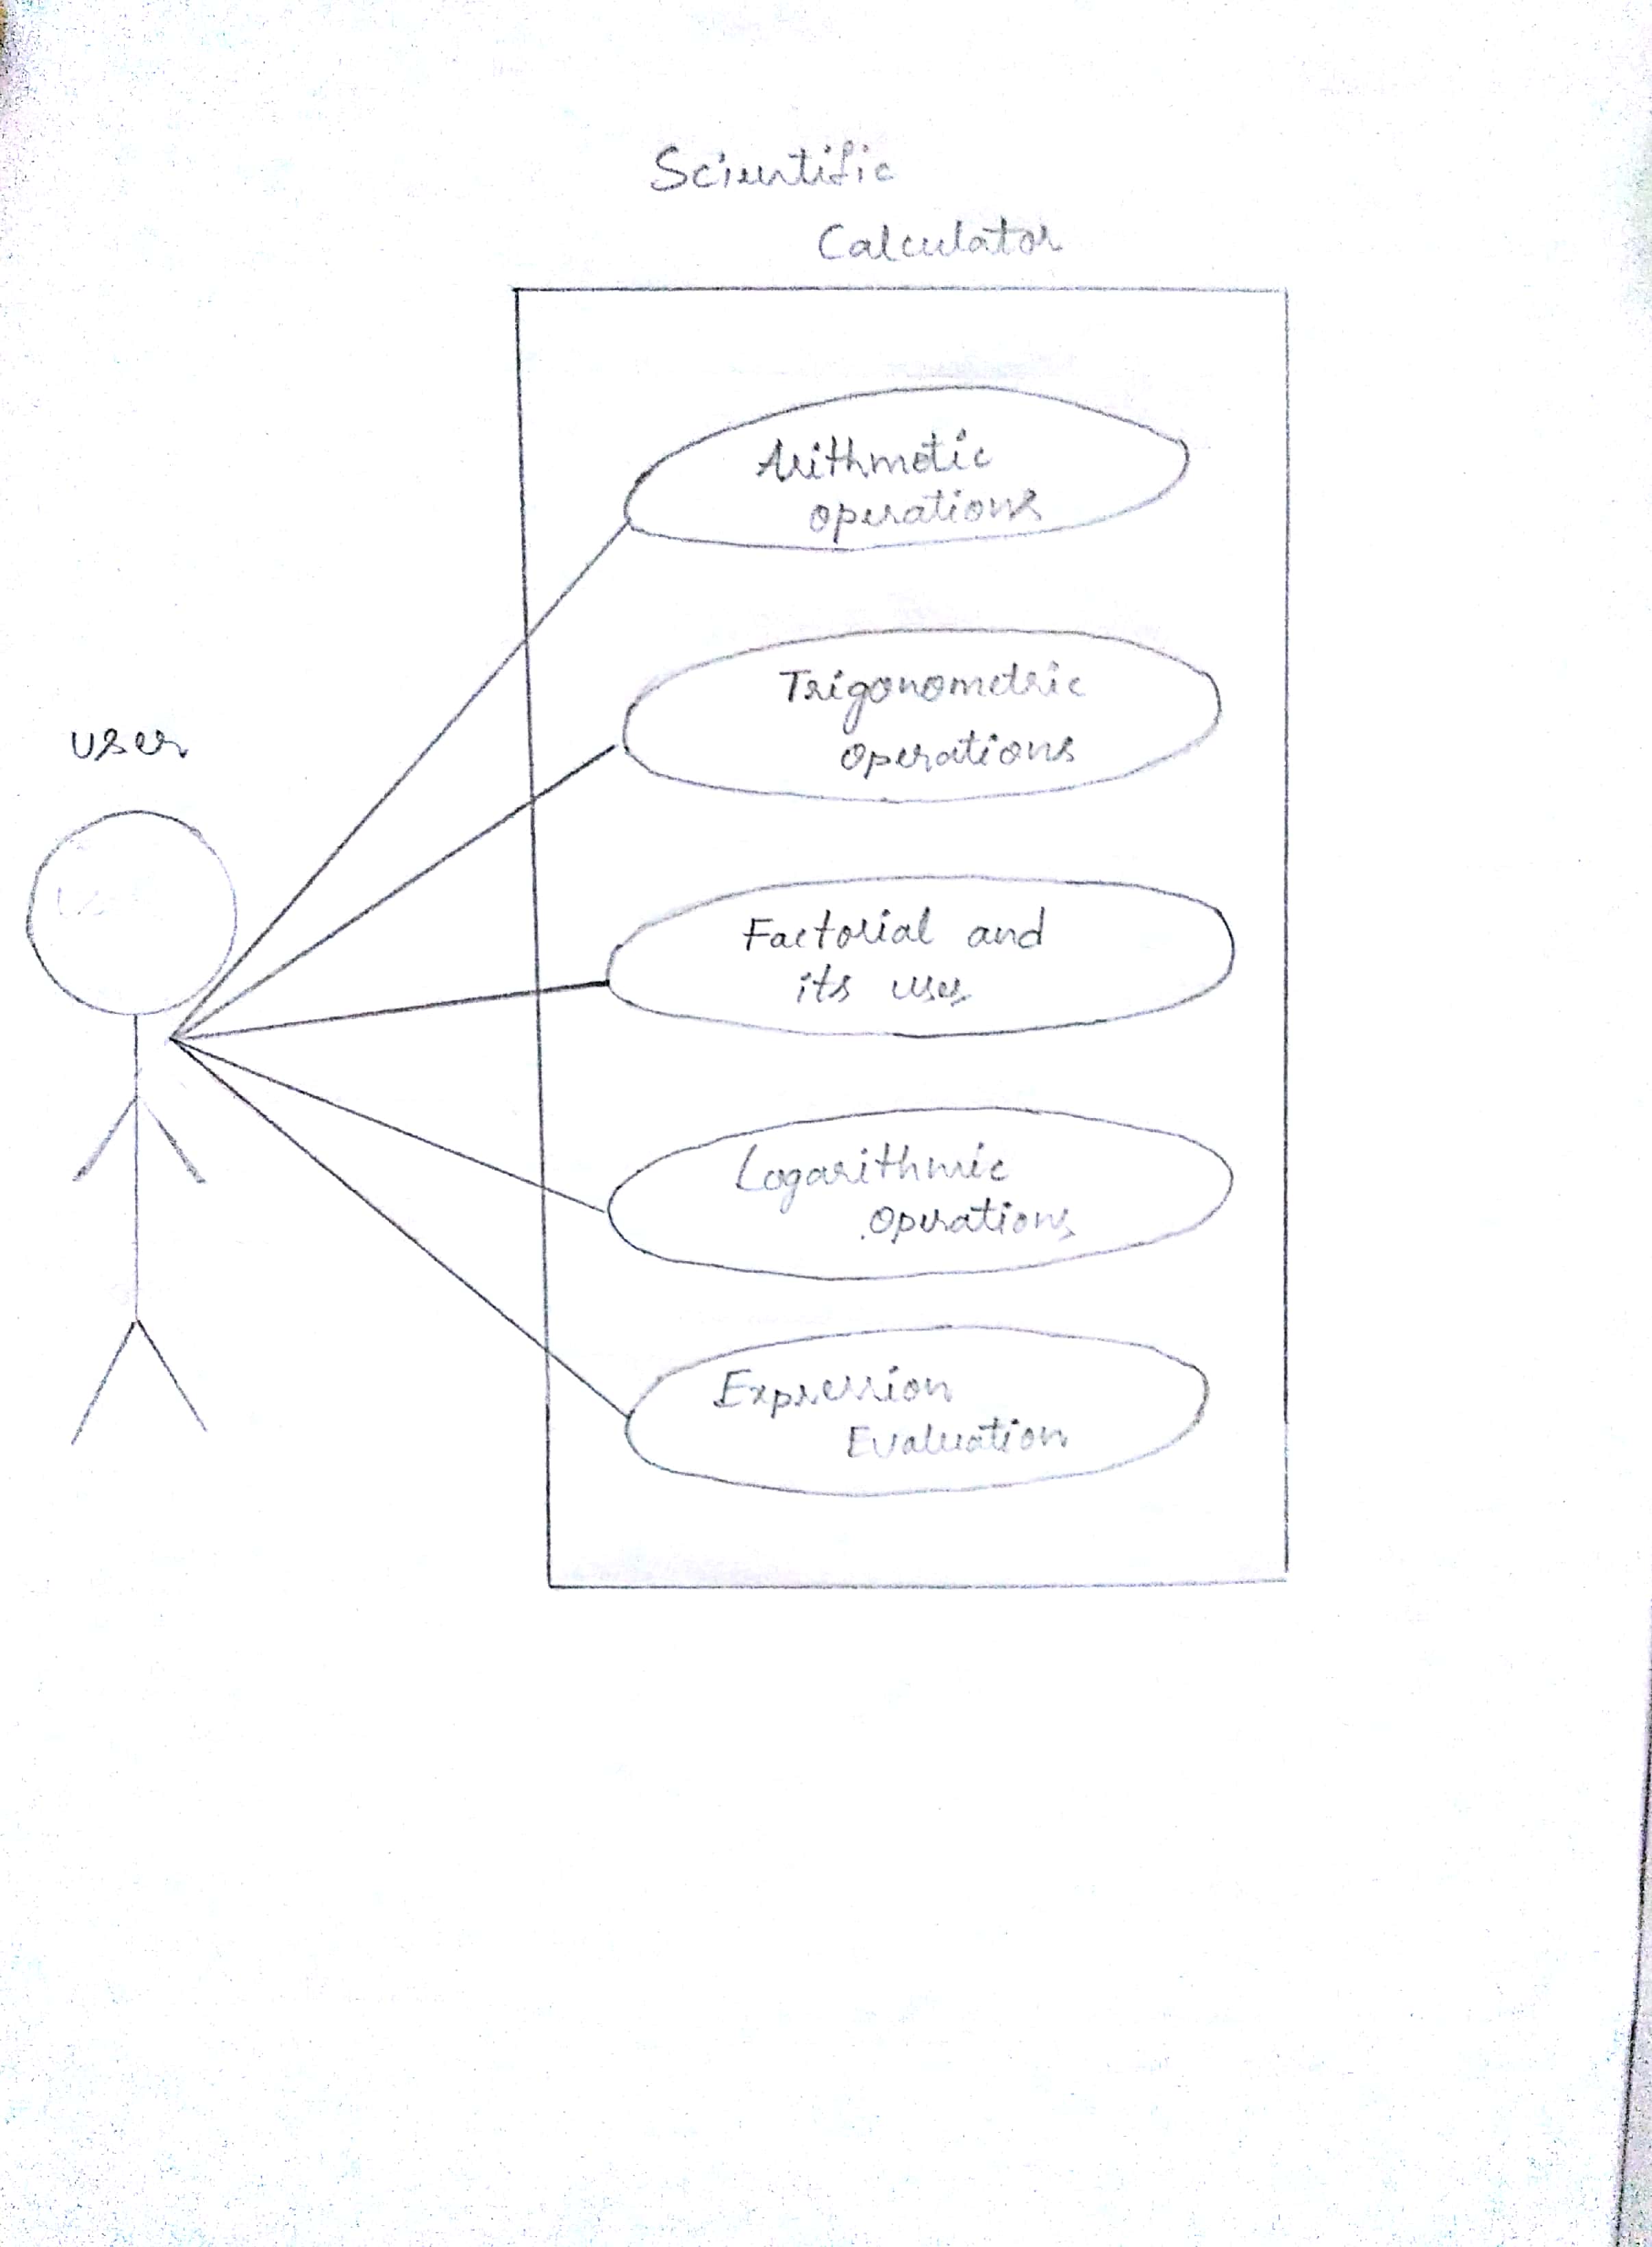 Scientific
Calculator
Arithmetic
operations
Trigonometric
operations
user
Factorial and
its uses
Logarithmic
operations
Expression
Evaluation